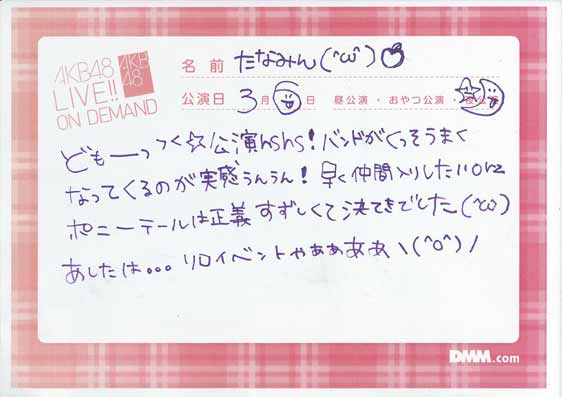 AKB48
LIVE!!
ON DEMAND
AKB
48
名前 たなみん(^ω^)
公演日 3月 日 昼公演・おやつ公演・夜公演
ども――っ つく☆公演hshs!バンドがくっそうまく
なってくるのが実感うんうん!早く仲間入りしたいorz
ポニーテールは正義 すずしくて決てきでした(^ω^)
あしたは・・・ リロイベントやぁぁああヽ(^o^)ノ
DMM.com